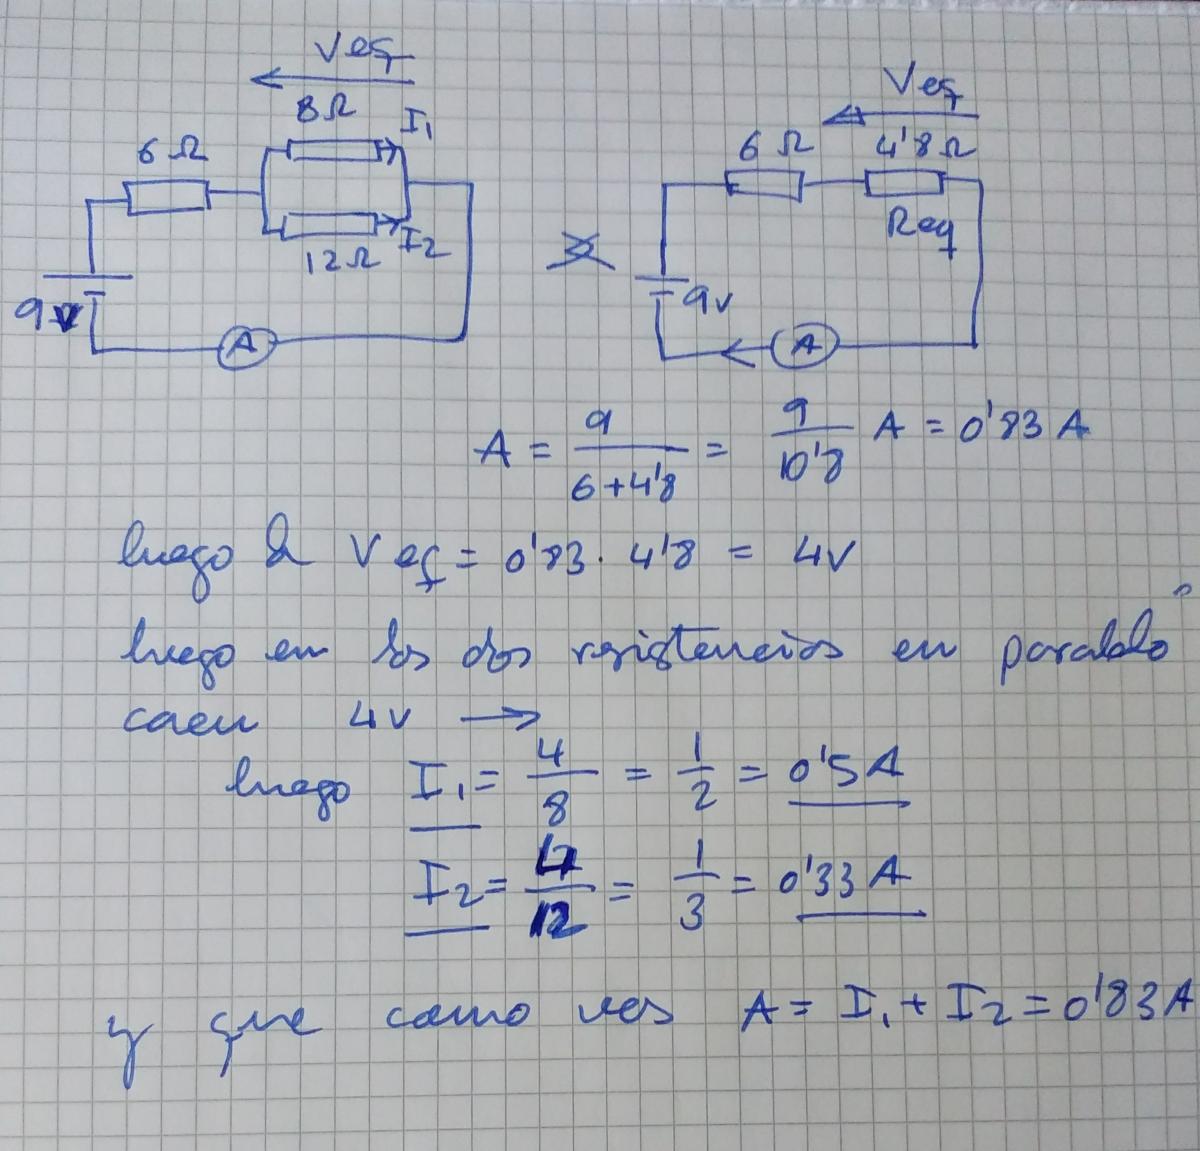 Veq
8Ω
I₁
6Ω
12Ω
I₂
9V
A
Veq
6Ω
4'8Ω
Req
9v
A
A = 9/(6+4'8) = 9/10'8 A = 0'83 A
luego Veq = 0'83 · 4'8 = 4V
luego en las dos resistencias en paralelo
caen 4V →
luego I₁ = 4/8 = 1/2 = 0'5 A
I₂ = 4/12 = 1/3 = 0'33 A
y que como ves A = I₁ + I₂ = 0'83 A